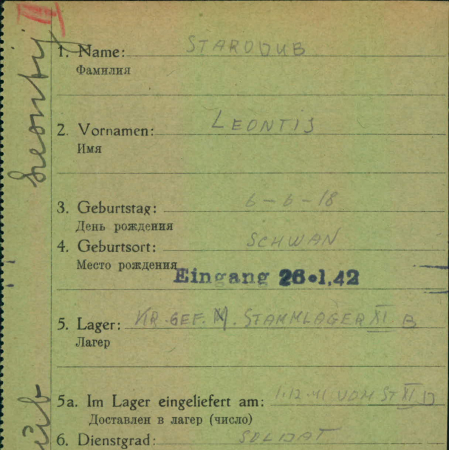 II
Leontij
1. Name: STARODUB
Фамилия
2. Vornamen: LEONTIJ
Имя
3. Geburtstag: 6-6-18
День рождения
4. Geburtsort: SCHWAN
Место рождения
Eingang 26.1.42
5. Lager: KR. GEF. M. STAMMLAGER XI B
Лагер
5a. Im Lager eingeliefert am: 1.12.41 VOM ST XI D
Доставлен в лагер (число)
6. Dienstgrad: SOLDAT